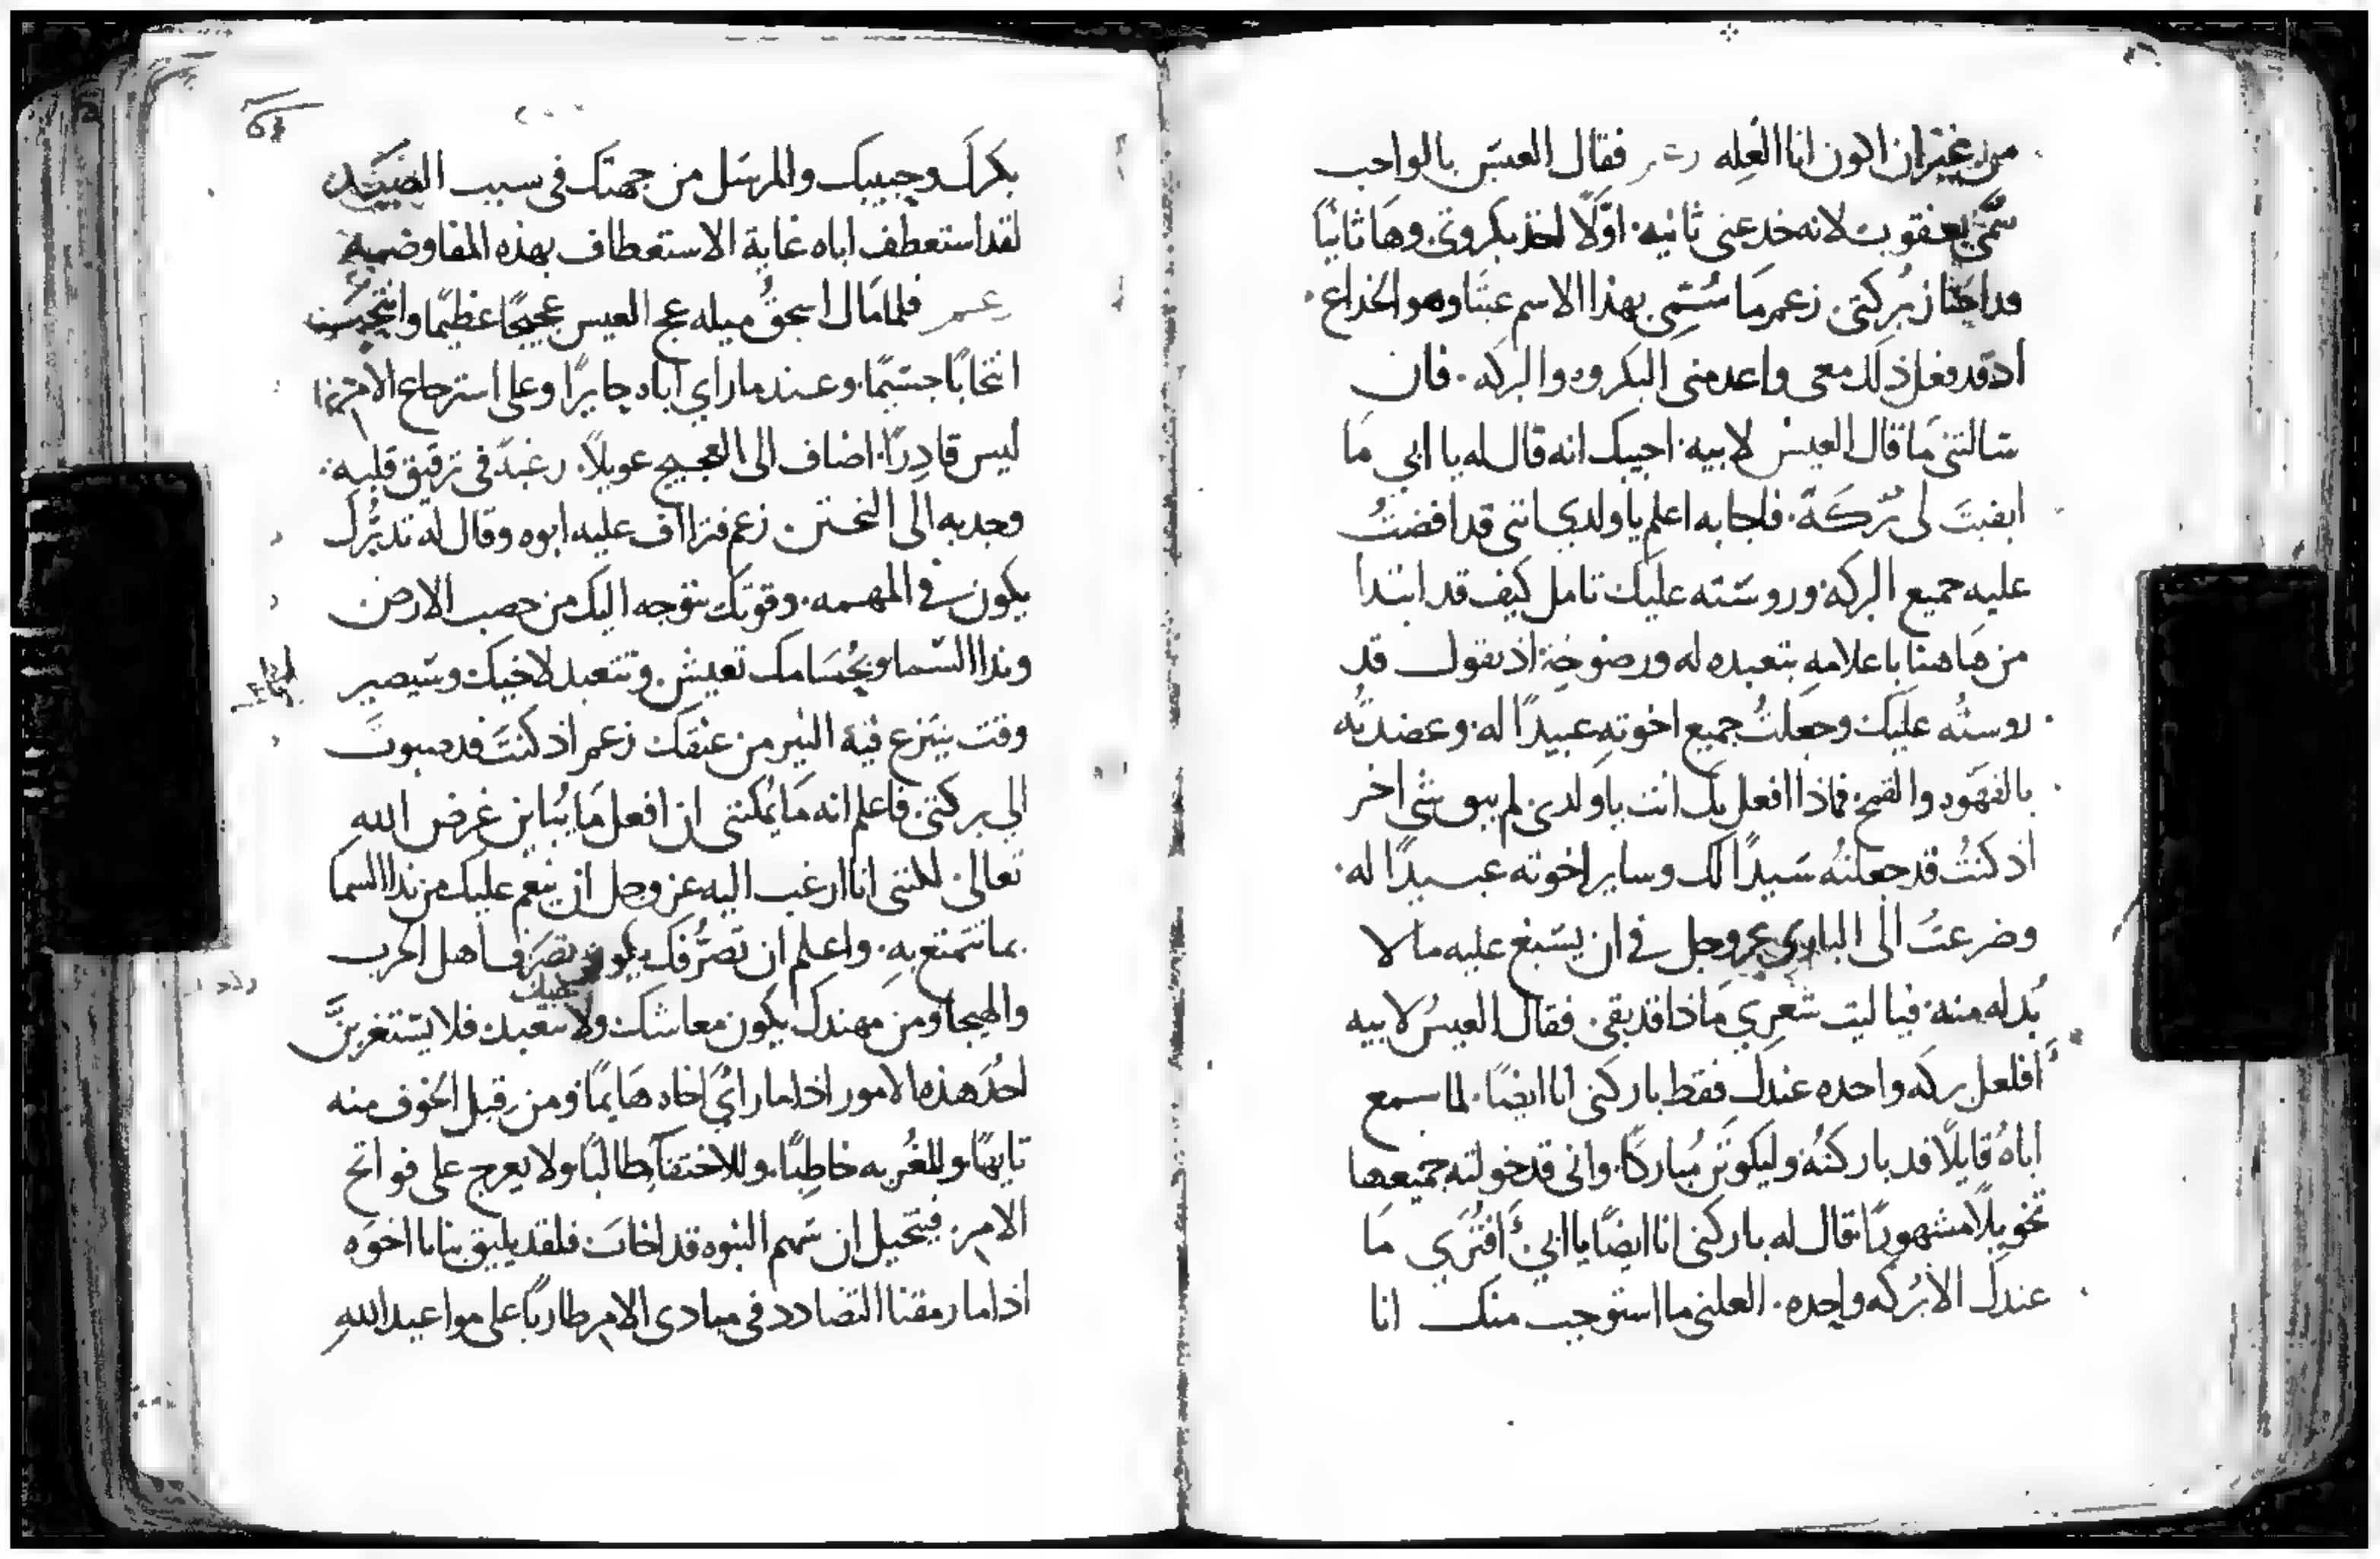 من غير ان اكون انا العله زعم فقال العيس بالواجب
سُمّي يعقوب لانه خدعني ثانيه. اوّلًا اخذ بكروتي وها ثانيًا
قد اجتاز بركتي. زعم ما سُمّي بهذا الاسم عبثا وهو الخداع.
اذ قد فعل ذلك معي واعدمني البكروه والبركه. فان
سالتني ما قال العيس لابيه. اجيبك انه قال له يا ابي ما
ابقيتَ لي بركةً. فاجابه اعلم يا ولدي انني قد افضتُ
عليه جميع البركه وروسته عليك تامل كيف قد ابتدا
من هاهنا باعلامه بتعبده له ورضوخه اذ يقول قد
روستُه عليك وجعلتُ جميع اخوته عبيدًا له. وعضدتُه
بالقهوه والقمح. فماذا افعل بك انت يا ولدي لم يبق شي اخر
اذ كنتُ قد جعلتُه سَيدًا لك وساير اخوته عبيدًا له.
وضرعتُ الى الباري عز وجل في ان يسبغ عليه ما لا
بُد له منه. فيا ليت شعري ماذا قد بقي. فقال العيسُ لابيه
أفلعل بركه واحده عندك فقط باركني انا ايضًا. لما سمع
اباهُ قايلًا قد باركتُه وليكونَن مُباركًا. واني قد خولته جميعها
تخويلًا مشهورًا. قال له باركني انا ايضًا يا ابي أفتُرَي ما
عندك الا بركه واحده. العلني ما استوجب منك انا
بكرك وحبيبك والمرسَل من جهتك في سبب الصيد
لقد استعطف اباه غاية الاستعطاف بهذه المفاوضه
زعم فلما مال اسحقُ ميله عج العيس عجيجًا عظيمًا وانتحب
انتحابًا جسيمًا. وعندما راي اباه حايرًا وعلى استرجاع الامر
ليس قادِرًا. اضاف الى العجيج عويلًا. رغبةً في ترقيق قلبه.
وجدبه الى التحنن. زعم فتراأف عليه ابوه وقال له تدبُّرك
يكون في المهمه. وقوتك يتوجه اليك من خصب الارض
وندا السما وبحُسَامك تعيش. وتتعبد لاخيك وسَيصير
وقت ينتزع فيه النير من عنقك زعم اذ كنتَ قد صبوتَ
الي بركتي. فاعلم انه ما يُمكنني ان افعل مَا يُباين غرض الله
تعالى. لكنني انا ارغب اليه عز وجل ان ينعم عليك من ندا السما
بما تتمتع به. واعلم ان تصَرُّفك يكون تصَرُّف اهل الحرب
والهيجا. ومن مهندك يكون معاشك ولاخيك تتعبد. فلا يستغربَنَّ
احُد هذه الامور اذا ما رائ اخاه هَايمًا. ومن قِبل الخوف منه
تايهًا. وللغُربه خاطبًا. وللاختفآ طالبًا. ولا يعرج على فواتح
الامر. فيتخيل ان سهم النبوه قد اخاب. فلقد يليق بنا يا اخوه
اذا ما رمقنا التضادد في مبادي الامر طاريًا على مواعيد الله